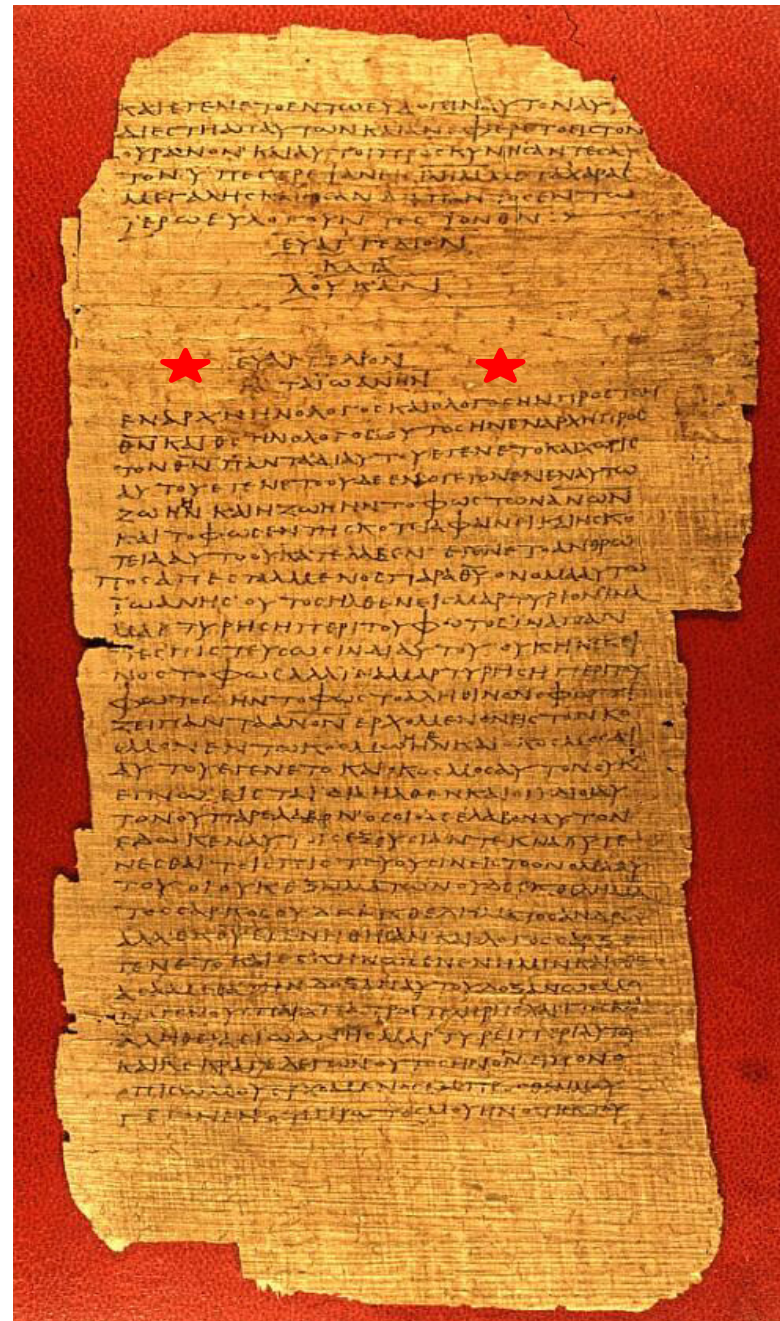 ΚΑΙΕΓΕΝΕΤΟΕΝΤΩΕΥΛΟΓΕΙΝΑΥΤΟΝΑΥ
ΔΙΕϹΤΗΑΠΑΥΤΩΝΚΑΙΑΝΕΦΕΡΕΤΟΕΙϹΤΟΝ
ΟΥΡΑΝΟΝΚΑΙΑΥΤΟΙΠΡΟϹΚΥΝΗϹΑΝΤΕϹΑΥ
ΤΟΝΥΠΕϹΤΡΕΨΑΝΕΙϹΙΛΗΜΜΕΤΑΧΑΡΑϹ
ΜΕΓΑΛΗϹΚΑΙΗϹΑΝΔΙΑΠΑΝΤΟϹΕΝΤΩ
ΙΕΡΩΕΥΛΟΓΟΥΝΤΕϹΤΟΝΘ̅Ν̅
ΕΥΑΓΓΕΛΙΟΝ
ΚΑΤΑ
ΛΟΥΚΑΝ
ΕΥΑΓΓΕΛΙΟΝ
ΚΑΤΑΙΩΑΝΗΝ
ΕΝΑΡΧΗΗΝΟΛΟΓΟϹΚΑΙΟΛΟΓΟϹΗΝΠΡΟϹΤΟΝ
Θ̅Ν̅ΚΑΙΘ̅Ϲ̅ΗΝΟΛΟΓΟϹΟΥΤΟϹΗΝΕΝΑΡΧΗΠΡΟϹ
ΤΟΝΘ̅Ν̅ΠΑΝΤΑΔΙΑΥΤΟΥΕΓΕΝΕΤΟΚΑΙΧΩΡΙϹ
ΑΥΤΟΥΕΓΕΝΕΤΟΟΥΔΕΕΝ·ΟΓΕΓΟΝΕΝΕΝΑΥΤΩ
ΖΩΗΗΝΚΑΙΗΖΩΗΗΝΤΟΦΩϹΤΩΝΑ̅Ν̅Ω̅Ν̅
ΚΑΙΤΟΦΩϹΕΝΤΗϹΚΟΤΕΙΑΦΑΙΝΕΙΚΑΙΗϹΚΟ
ΤΕΙΑΑΥΤΟΟΥΚΑΤΕΛΑΒΕΝ·ΕΓΕΝΕΤΟΑΝΘΡΩ
ΠΟϹΑΠΕϹΤΑΛΜΕΝΟϹΠΑΡΑΘ̅Υ̅ΟΝΟΜΑΑΥΤΩ
ΙΩΑΝΗϹ·ΟΥΤΟϹΗΛΘΕΝΕΙϹΜΑΡΤΥΡΙΟΝΙΝΑ
ΜΑΡΤΥΡΗϹΗΠΕΡΙΤΟΥΦΩΤΟϹΙΝΑΠΑΝ
ΤΕϹΠΙϹΤΕΥϹΩϹΙΝΔΙΑΥΤΟΥ·ΟΥΚΗΝΕΚΕΙ
ΝΟϹΤΟΦΩϹΑΛΛΙΝΑΜΑΡΤΥΡΗϹΗΠΕΡΙΤΟΥ
ΦΩΤΟϹ·ΗΝΤΟΦΩϹΤΟΑΛΗΘΙΝΟΝΟΦΩΤΙ
ΖΕΙΠΑΝΤΑΑ̅Ν̅Ο̅Ν̅ΕΡΧΟΜΕΝΟΝΕΙϹΤΟΝΚΟ
ϹΜΟΝΕΝΤΩΚΟϹΜΩΗΝΚΑΙΟΚΟϹΜΟϹΔΙ
ΑΥΤΟΥΕΓΕΝΕΤΟΚΑΙΟΚΟϹΜΟϹΑΥΤΟΝΟΥΚ
ΕΓΝΩ·ΕΙϹΤΑΙΔΙΑΗΛΘΕΝΚΑΙΟΙΙΔΙΟΙΑΥ
ΤΟΝΟΥΠΑΡΕΛΑΒΟΝ·ΟϹΟΙΔΕΕΛΑΒΟΝΑΥΤΟΝ
ΕΔΩΚΕΝΑΥΤΟΙϹΕΞΟΥϹΙΑΝΤΕΚΝΑΘ̅Υ̅ΓΕ
ΝΕϹΘΑΙΤΟΙϹΠΙϹΤΕΥΟΥϹΙΝΕΙϹΤΟΟΝΟΜΑΑΥ
ΤΟΥΟΙΟΥΚΕΞΑΙΜΑΤΩΝΟΥΔΕΕΚΘΕΛΗΜΑ
ΤΟϹϹΑΡΚΟϹΟΥΔΕΕΚΘΕΛΗΜΑΤΟϹΑΝΔΡΟϹ
ΑΛΛΕΚΘ̅Υ̅ΕΓΕΝΗΘΗϹΑΝΚΑΙΟΛΟΓΟϹϹΑΡΞΕ
ΓΕΝΕΤΟΚΑΙΕϹΚΗΝΩϹΕΝΕΝΗΜΙΝΚΑΙΕΘΕ
ΑϹΑΜΕΘΑΤΗΝΔΟΞΑΝΑΥΤΟΥΔΟΞΑΝΩϹΜΟ
ΝΟΓΕΝΟΥϹΠΑΡΑΠΑΤΡΟϹΠΛΗΡΗϹΧΑΡΙΤΟϹΚΑΙ
ΑΛΗΘΕΙΑϹΙΩΑΝΗϹΜΑΡΤΥΡΕΙΠΕΡΙΑΥΤΟΥ
ΚΑΙΚΕΚΡΑΓΕΛΕΓΩΝΟΥΤΟϹΗΝΟΝΕΙΠΟΝΟ
ΟΠΙϹΩΜΟΥΕΡΧΟΜΕΝΟϹΕΜΠΡΟϹΘΕΝΜΟΥ
ΓΕΓΟΝΕΝΟΤΙΠΡΩΤΟϹΜΟΥΗΝΟΤΙΕΚΤΟΥ